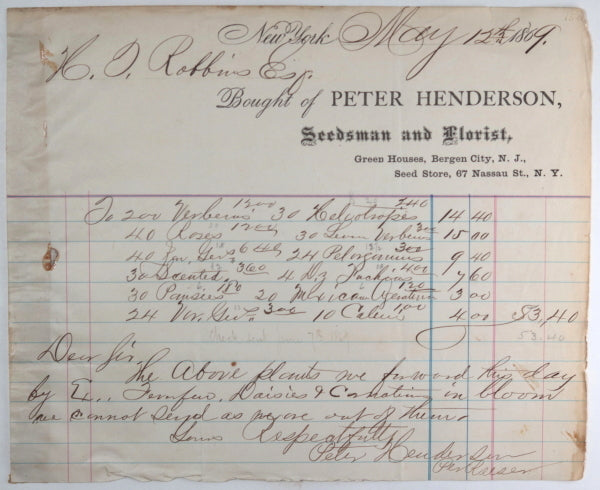 New York May 12th 1869.
H. D. Robbins Esq.
Bought of PETER HENDERSON,
Seedsman and Florist,
Green Houses, Bergen City, N. J.,
Seed Store, 67 Nassau St., N. Y.
To 200 Verbenas 1200 30 Heliotropes 240 14 40
40 Roses 1200 30 Lem Verbenas 300 15 00
40 640 24 Pelargoniums 300 9 40
30 Scented 360 4 400 7 60
30 Pansies 180 20 Mexican Ageratum 120 3 00
24 Var. Ger. 300 10 100 4 00 53,40
53.40
Dear Sir,
The above plants we forward this day
by Daisies & Carnations in bloom
we cannot send as we are out of them.
Yours Respectfully
Peter Henderson